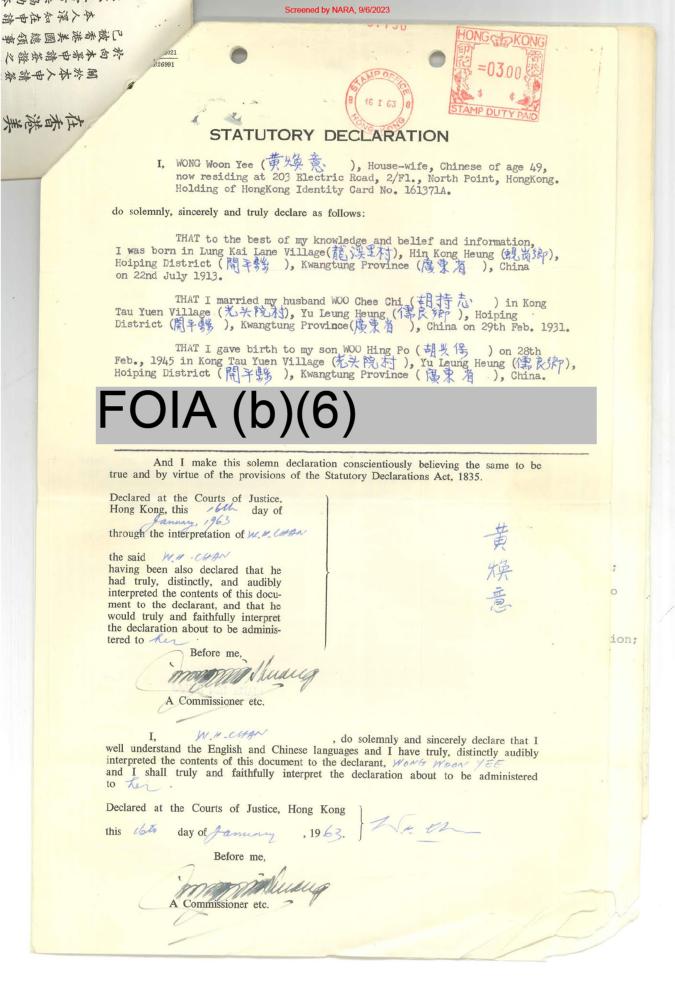 Screened by NARA, 9/6/2023
HONG KONG
印花
香港
=03.00
$ ¢
STAMP DUTY PAID
STAMP OFFICE
16 I 63
HONG KONG
STATUTORY DECLARATION
I, WONG Woon Yee (黃煥意 ), House-wife, Chinese of age 49,
now residing at 203 Electric Road, 2/Fl., North Point, HongKong.
Holding of HongKong Identity Card No. 161371A.
do solemnly, sincerely and truly declare as follows:
THAT to the best of my knowledge and belief and information,
I was born in Lung Kai Lane Village(龍溪里村), Hin Kong Heung (蜆崗鄉),
Hoiping District (開平縣 ), Kwangtung Province (廣東省 ), China
on 22nd July 1913.
THAT I married my husband WOO Chee Chi (胡持志 ) in Kong
Tau Yuen Village (光头院村), Yu Leung Heung (儒良鄉 ), Hoiping
District (開平縣 ), Kwangtung Province(廣東省 ), China on 29th Feb. 1931.
THAT I gave birth to my son WOO Hing Po ( ) on 28th
Feb., 1945 in Kong Tau Yuen Village (光头院村 ), Yu Leung Heung (儒良鄉),
Hoiping District (開平縣 ), Kwangtung Province (廣東省 ), China.
FOIA (b)(6)
And I make this solemn declaration conscientiously believing the same to be
true and by virtue of the provisions of the Statutory Declarations Act, 1835.
Declared at the Courts of Justice,
Hong Kong, this 16th day of
January, 1963
through the interpretation of W.H. CHAN
the said W.H. CHAN
having been also declared that he
had truly, distinctly, and audibly
interpreted the contents of this docu-
ment to the declarant, and that he
would truly and faithfully interpret
the declaration about to be adminis-
tered to her.
黃煥意
Before me,
A Commissioner etc.
I, W.H. CHAN , do solemnly and sincerely declare that I
well understand the English and Chinese languages and I have truly, distinctly audibly
interpreted the contents of this document to the declarant, WONG WOON YEE
and I shall truly and faithfully interpret the declaration about to be administered
to her.
Declared at the Courts of Justice, Hong Kong
this 16th day of January , 1963.
Before me,
A Commissioner etc.